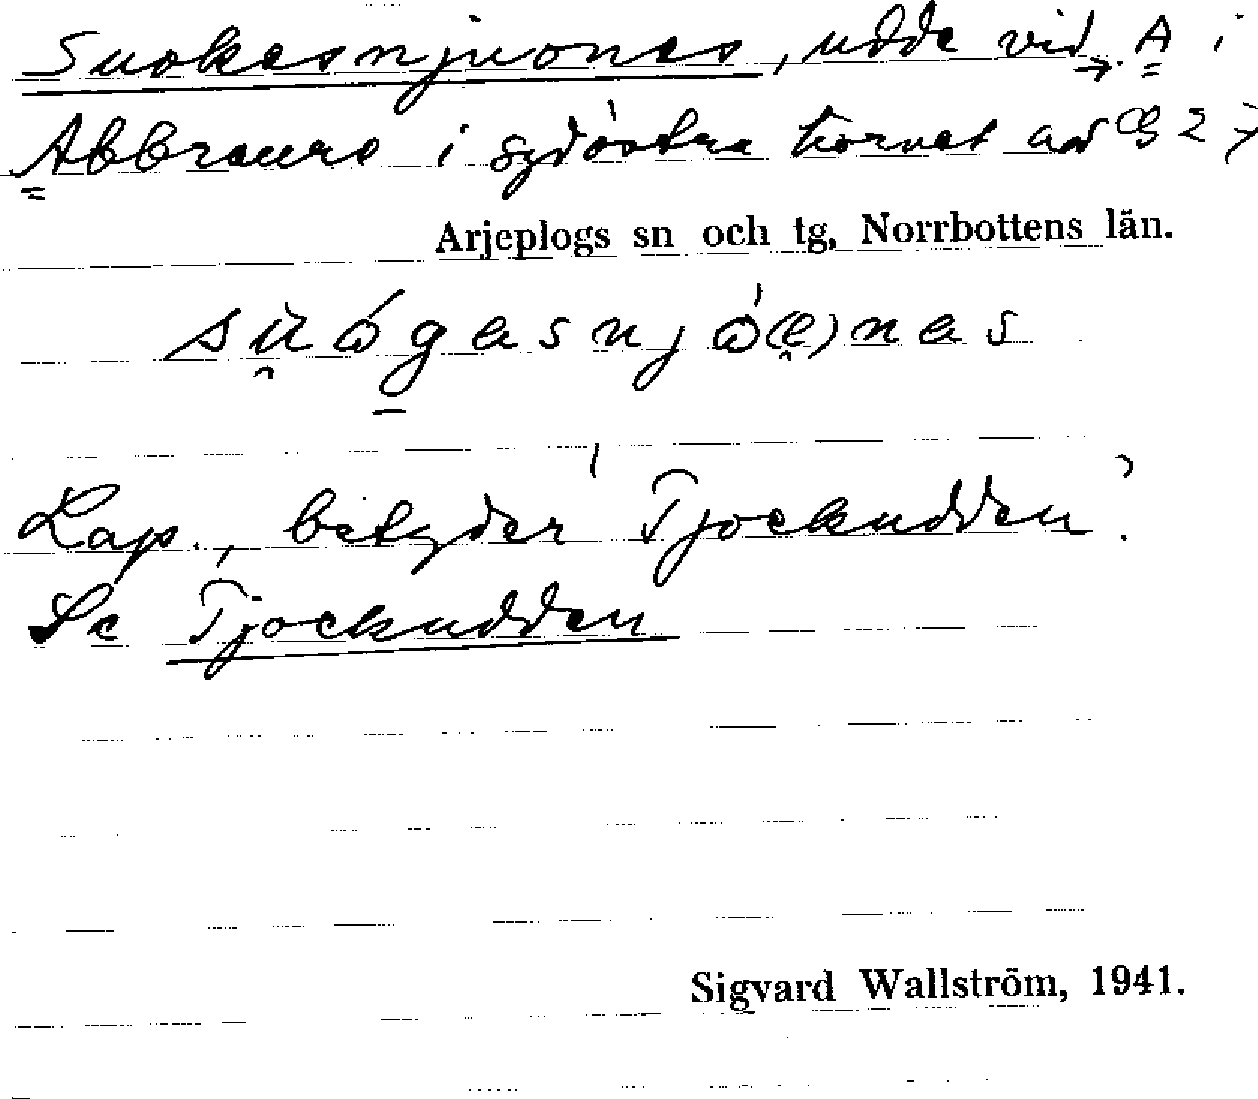 Suokasnjuonas, udde vid A i
Abbraure i sydöstra hörnet av G 27
Arjeplogs sn och tg, Norrbottens län.
sùógasnjó(e)nas
Lap., betyder 'Tjockudden'.
Se Tjockudden
Sigvard Wallström, 1941.